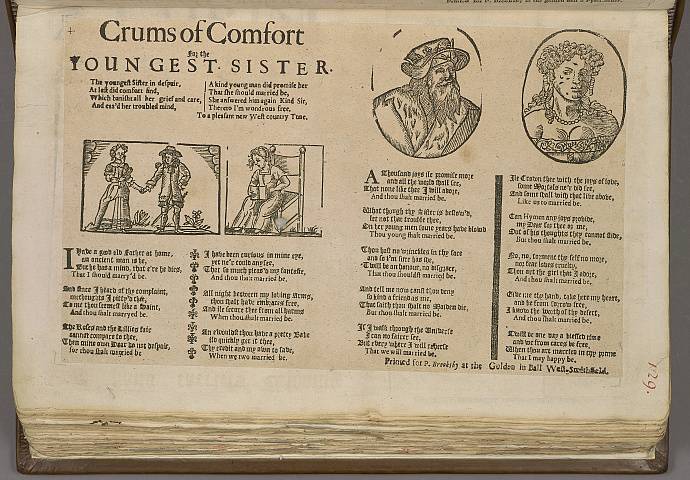 Crums of Comfort
For the
YOUNGEST SISTER.
The youngest Sister in despair,
At last did comfort find,
Which banisht all her grief and care,
And eas'd her troubled mind,
A kind young man did promise her
That she should married be,
She answered him again Kind Sir,
Thereto I'm wondrous free.
To a pleasant new West country Tune.
I Have a good old Father at home,
an ancient man is he,
But he has a mind, that e're he dies,
That I should marry'd be.
And since I heard of thy complaint,
methoughts I pitty'd thee,
To me thou seemest like a Saint,
And thou shalt marryed be.
The Roses and the Lillies fair
cannot compare to thee,
Then mine own Dear do not despair,
for thou shalt married be
I have been curious in mine eye,
yet ne'r could any see,
That so much pleas'd my fantasie,
And thou shalt married be.
All night between my loving Arms,
thou shalt have embraces free,
And ile secure thee from all harms
When thou shalt marryed be.
An shouldst thou have a pretty Babe
ile quickly get it thee,
Thy credit and my own to save,
When we two married be.
A Thousand joys ile promise more
and all the world shall see,
That none like thee I will adore,
And thou shalt married be.
What though thy Sister is bestow'd,
let not that trouble thee,
On her young men some years have blowd
Thou young shalt married be.
Thou hast no wrinckles in thy face
and so I'm sure has she,
'Twill be an honour, no disgrace,
That thou shouldst married be.
And tell me now canst thou deny
so kind a friend as me,
That saith thou shalt no Maiden die,
But thou shalt married be.
If I walk through the Universe
I can no fairer see,
But every where I will rehearse
That we will married be.
Ile Crown thee with the joys of love,
some Mortals ne'r did see,
And none shall with that like above,
Like us to married be.
Can Hymen any joys provide,
my Dear for thee or me,
Out of his thoughts they cannot slide,
But thou shalt married be.
No, no, torment thy self no more,
nor fear loves cruelty,
Thou art the girl that I adore,
And thou shalt married be.
Give me thy hand, take here my heart,
and be from sorrow free,
I know the worth of thy desert,
And thou shalt married be.
'Twill be one day a blessed time
and we from cares be free,
When thou art married in thy prime
That I may happy be.
Printed for P. Brooksby at the Golden in Ball West-Smithfield.
129.